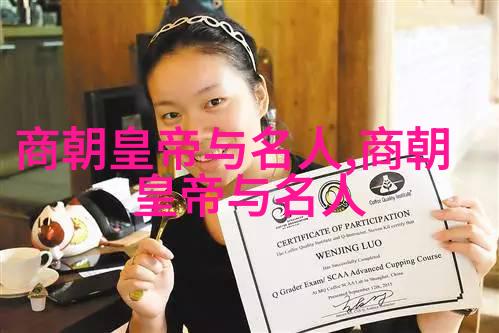 商朝皇帝与名人,商朝
皇帝与名人
Coffee Quality Institute
CERTIFICATE OF PARTICIPATION
The Coffee Quality Institute and Q-Instructor, Steven Kil certify that
WENJING LUO
Has Successfully Completed
Q Grader Exam/ SCAA Advanced Cupping Course
At MQ Coffee SCAA Lab in Shanghai, China
Presented September 12th, 2015